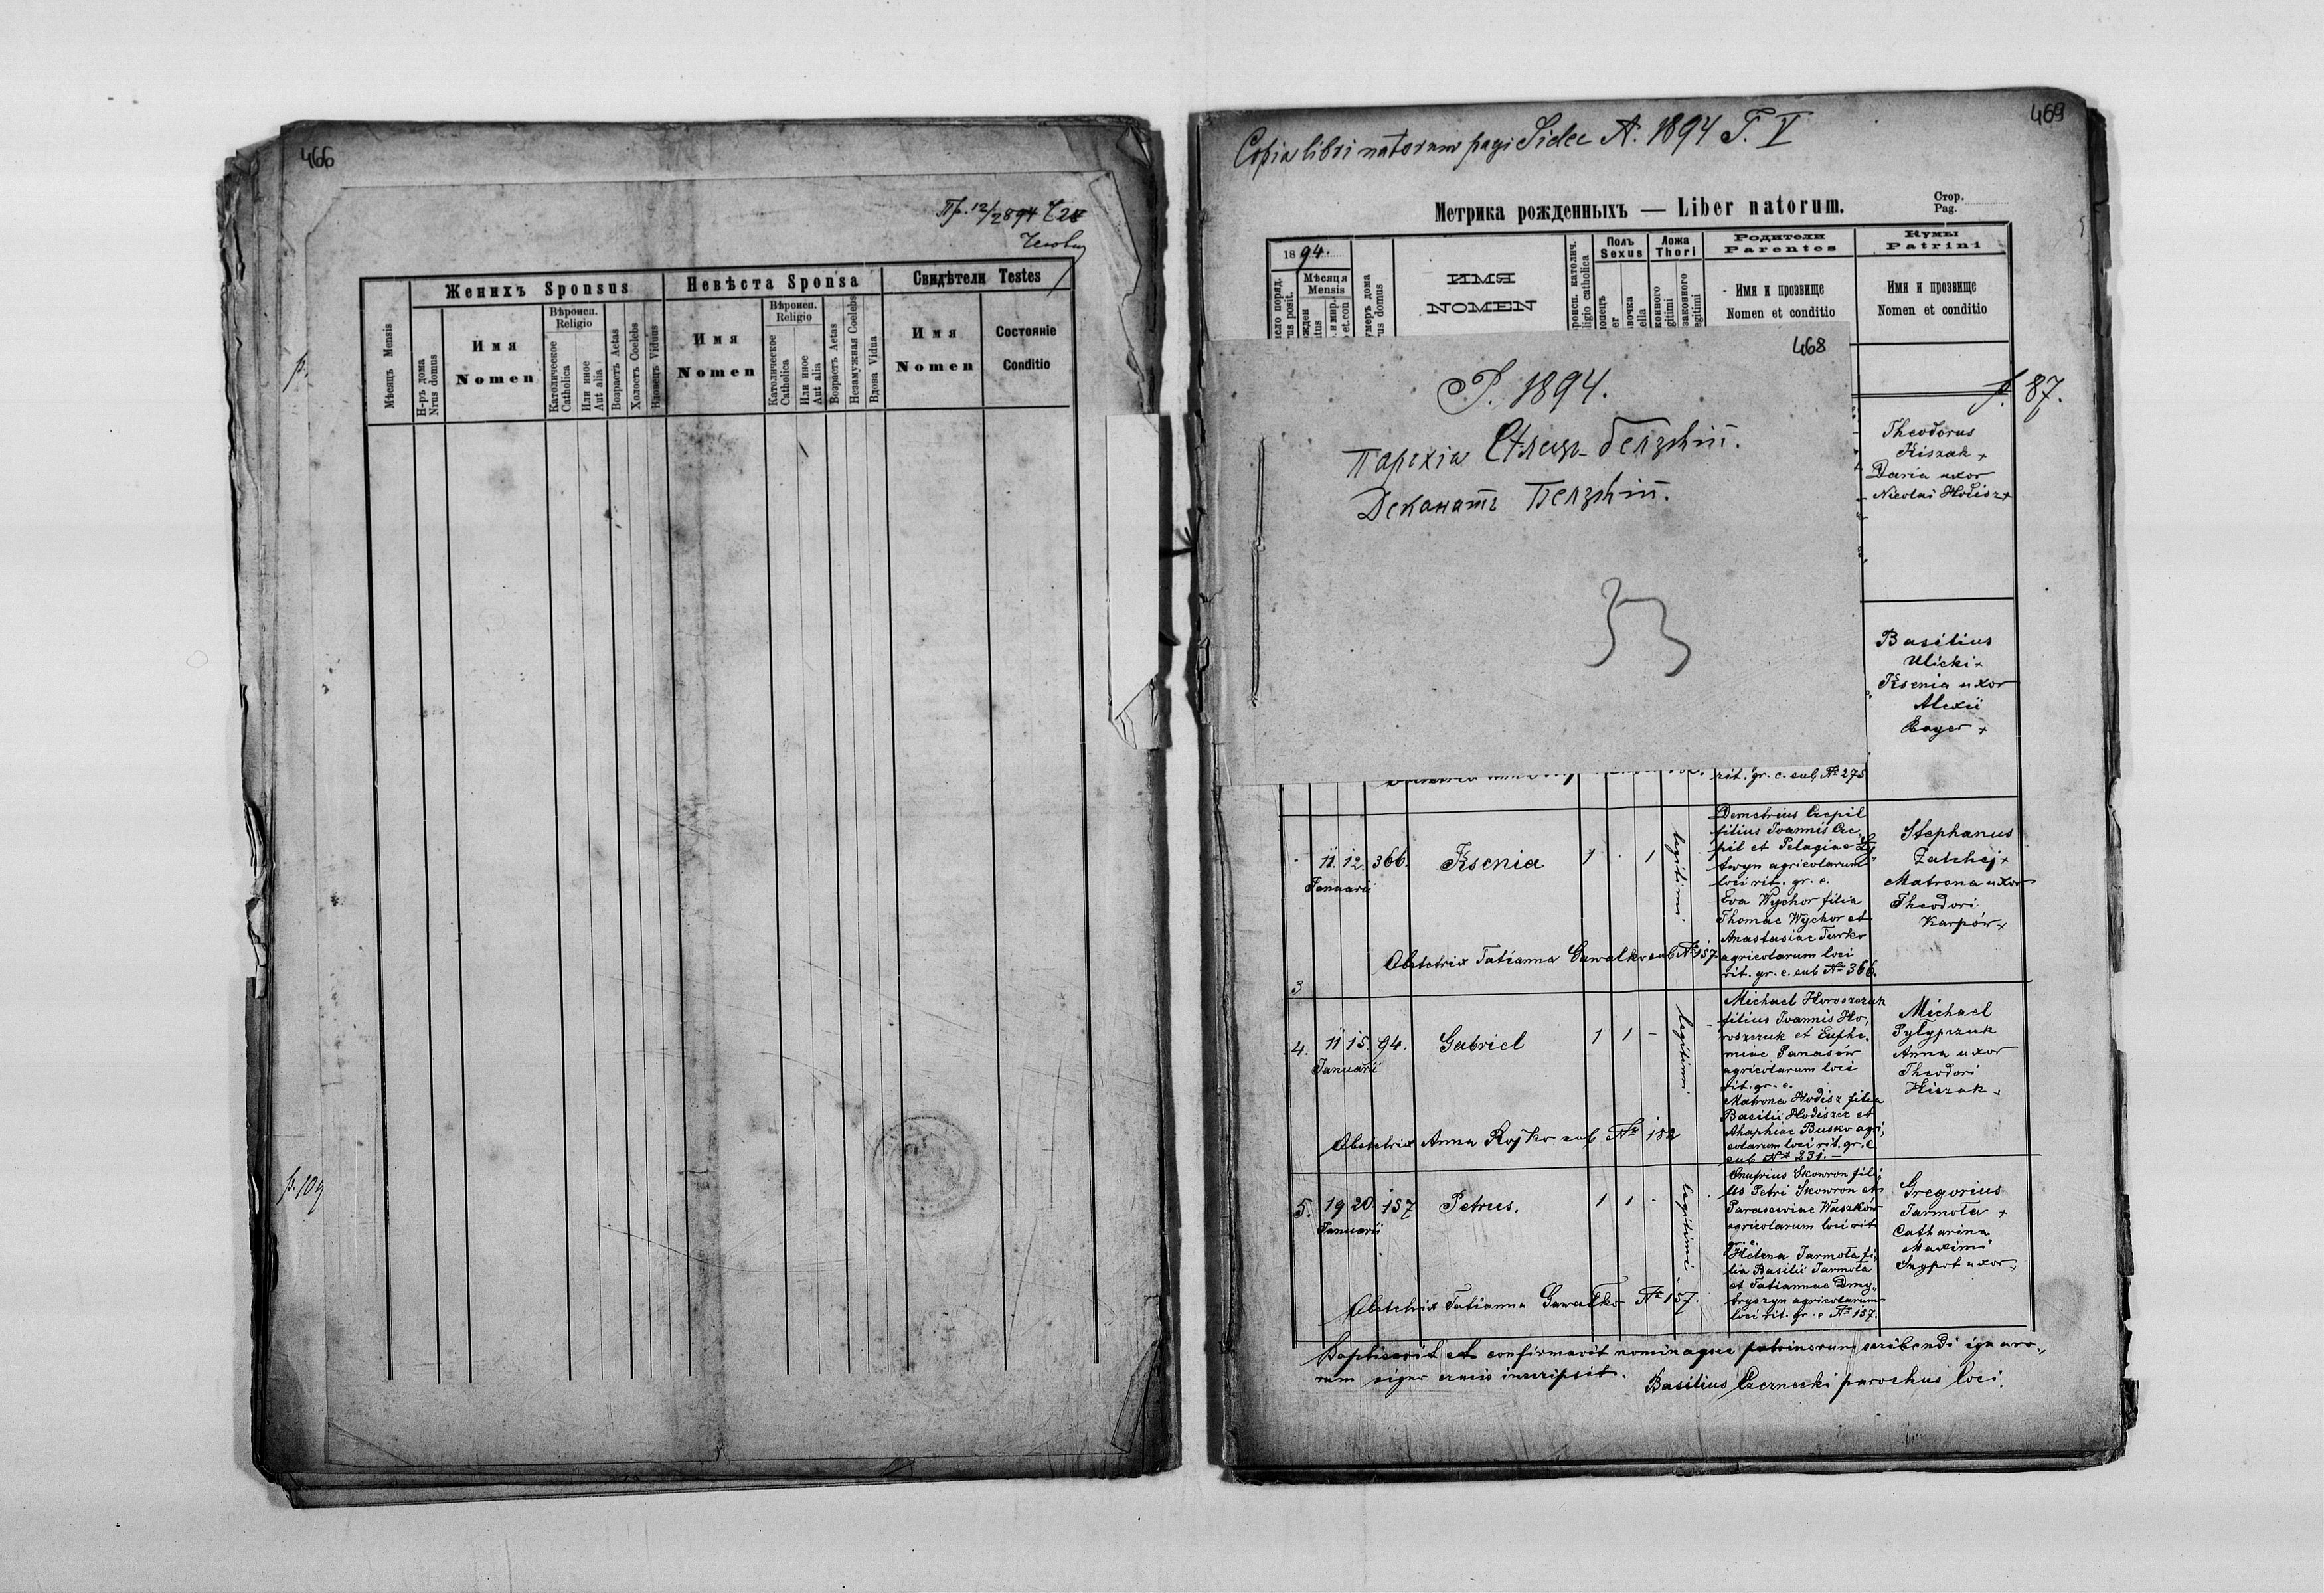 466
Пр. 12/2 894 Ч 28
р.
Женихъ Sponsus
Невѣста Sponsa
Свидѣтели Testes
Мѣсяцъ Mensis
Н-ръ дома
Nrus domus
Имя
Nomen
Вѣроисп.
Religio
Католическое
Catholica
Или иное
Aut alia
Возрастъ Aetas
Холостъ Coelebs
Вдовецъ Viduus
Имя
Nomen
Вѣроисп.
Religio
Католическое
Catholica
Или иное
Aut alia
Возрастъ Aetas
Незамужная Coelebs
Вдова Vidua
Имя
Nomen
Состояніе
Conditio
p. 109
469
Copia libri natorum pagi Sielec A. 1894 T. V
Метрика рожденныхъ — Liber natorum.
Стор.
Pag.
1894.
Мѣсяця
Mensis
ИМЯ
NOMEN
Полъ
Sexus
Ложа
Thori
Родители
Parentes
Имя и прозвище
Nomen et conditio
Кумы
Patrini
Имя и прозвище
Nomen et conditio
f. 87.
468
Р. 1894.
Парохія Сѣлецъ-белзкій.
Деканатъ Белзкій.
53
Theodorus
Kiszak +
Daria uxor
Nicolai Hodisz +
Basilius
Ulicki +
Ksenia uxor
Alexii
Bayer +
rit. gr. c. sub № 275
3
11. 12. 366.
Januarii
Ksenia
1 . 1
legitimi
Demetrius Czepil
filius Joannis Cze
pil et Pelagiae
agricolarum
loci rit. gr. c.
Eva Wychor filia
Thomae Wychor et
Anastasiae Turko
agricolarum loci
rit. gr. c. sub № 366.
Stephanus
Zatchej +
Matrona uxor
Theodori
Karpów +
Obstetrix Tatianna Gawalko sub № 157.
4. 11 15. 94.
Januarii
Gabriel
1 1 -
legitimi
Michael Horoszczuk
filius Joannis Ho,
roszczuk et Euphe,
miae Panasów
agricolarum loci
rit. gr. c.
Matrona Hodisz filia
Basilii Hodisz et
Ahaphiae Busko agri,
colarum loci rit. gr. c
sub № 231. —
Michael
Pylypczuk
Anna uxor
Theodori
Kiszak
Obstetrix Anna Rojko sub № 182
5. 19 20. 157
Januarii
Petrus.
1 1 -
legitimi
Onufrius Skowron fili,
us Petri Skowron et
Parasceviae Waszków
agricolarum loci rit
gr. c.
Helena Jarmoła fi,
lia Basilii Jarmoła
et Tatiannae Dmy,
tryszyn agricolarum
loci rit. gr. c № 157.
Gregorius
Jarmoła +
Catharina
Maximi
Snypot uxor
Obstetrix Tatianna Gawałko № 157.
Baptisavit et confirmavit nominaque patrinorum scribendi ignaro,,
rum signo crucis inscripsit. Basilius Czernecki parochus loci.